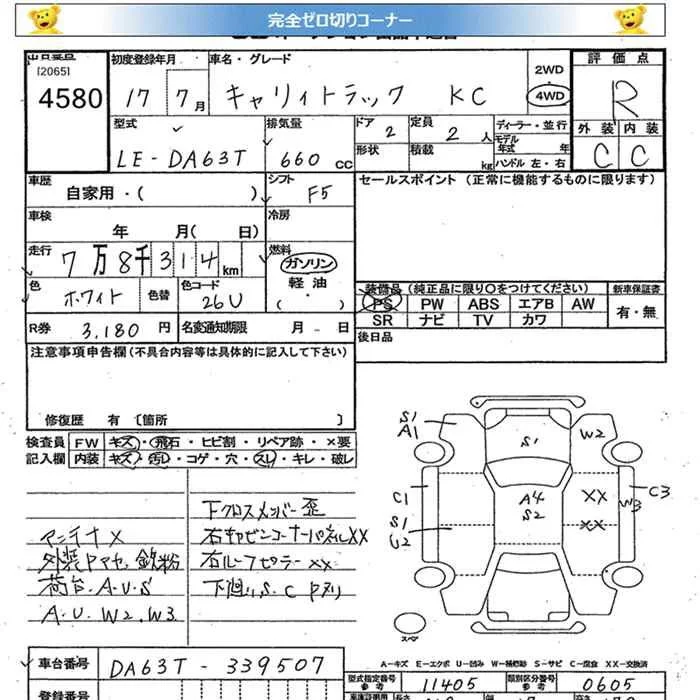 完全ゼロ切りコーナー
出品票品 初度登録年月 車名・グレード 評価点
[2065] 2WD
4580 17 7月 キャリィトラック KC 4WD R
型式 排気量 ドア 2 定員 2人 ディーラー・並行 外装 内装
モデル年式 年
LE-DA63T 660cc 形状 積載 kg ハンドル 左・右 C C
車歴 シフト セールスポイント (正常に機能するものに限ります)
自家用・( ) F5
車検 冷房
年 月( 日)
走行 燃料
7万8千314km ガソリン
軽油・
( )
色 色替 色コード 装備品 (純正品に限り〇をつけてください) 新車保証書
ホワイト 26U PS PW ABS エアB AW 有・無
SR ナビ TV カワ
R券 3,180円 名変通知期限 月 日 後日品
注意事項申告欄(不具合内容等は具体的に記入して下さい)
修復歴 有 〔箇所 〕
検査員 FW キズ・飛石・ヒビ割・リペア跡・×要
記入欄 内装 キズ・汚レ・コゲ・穴・スレ・キレ・破レ
S1 A1
S1
W2
C1
A4
S2
XX
XX
W3
C3
S1
U2
スペア
下クロスメンバー歪
アンテナX
右キャビンコーナーパネルXX
外装Pアセ、鉄粉
右ルーフピラーXX
荷台、A.U.S
下廻り、S.C Pヌリ
A.U.W2.W3
A-キズ E-エクボ U-凹み W-補修跡 S-サビ C-腐食 XX-交換済
車台番号 DA63T-339507
型式指定番号 11405 類別区分番号 0605
参考 参考
登録番号